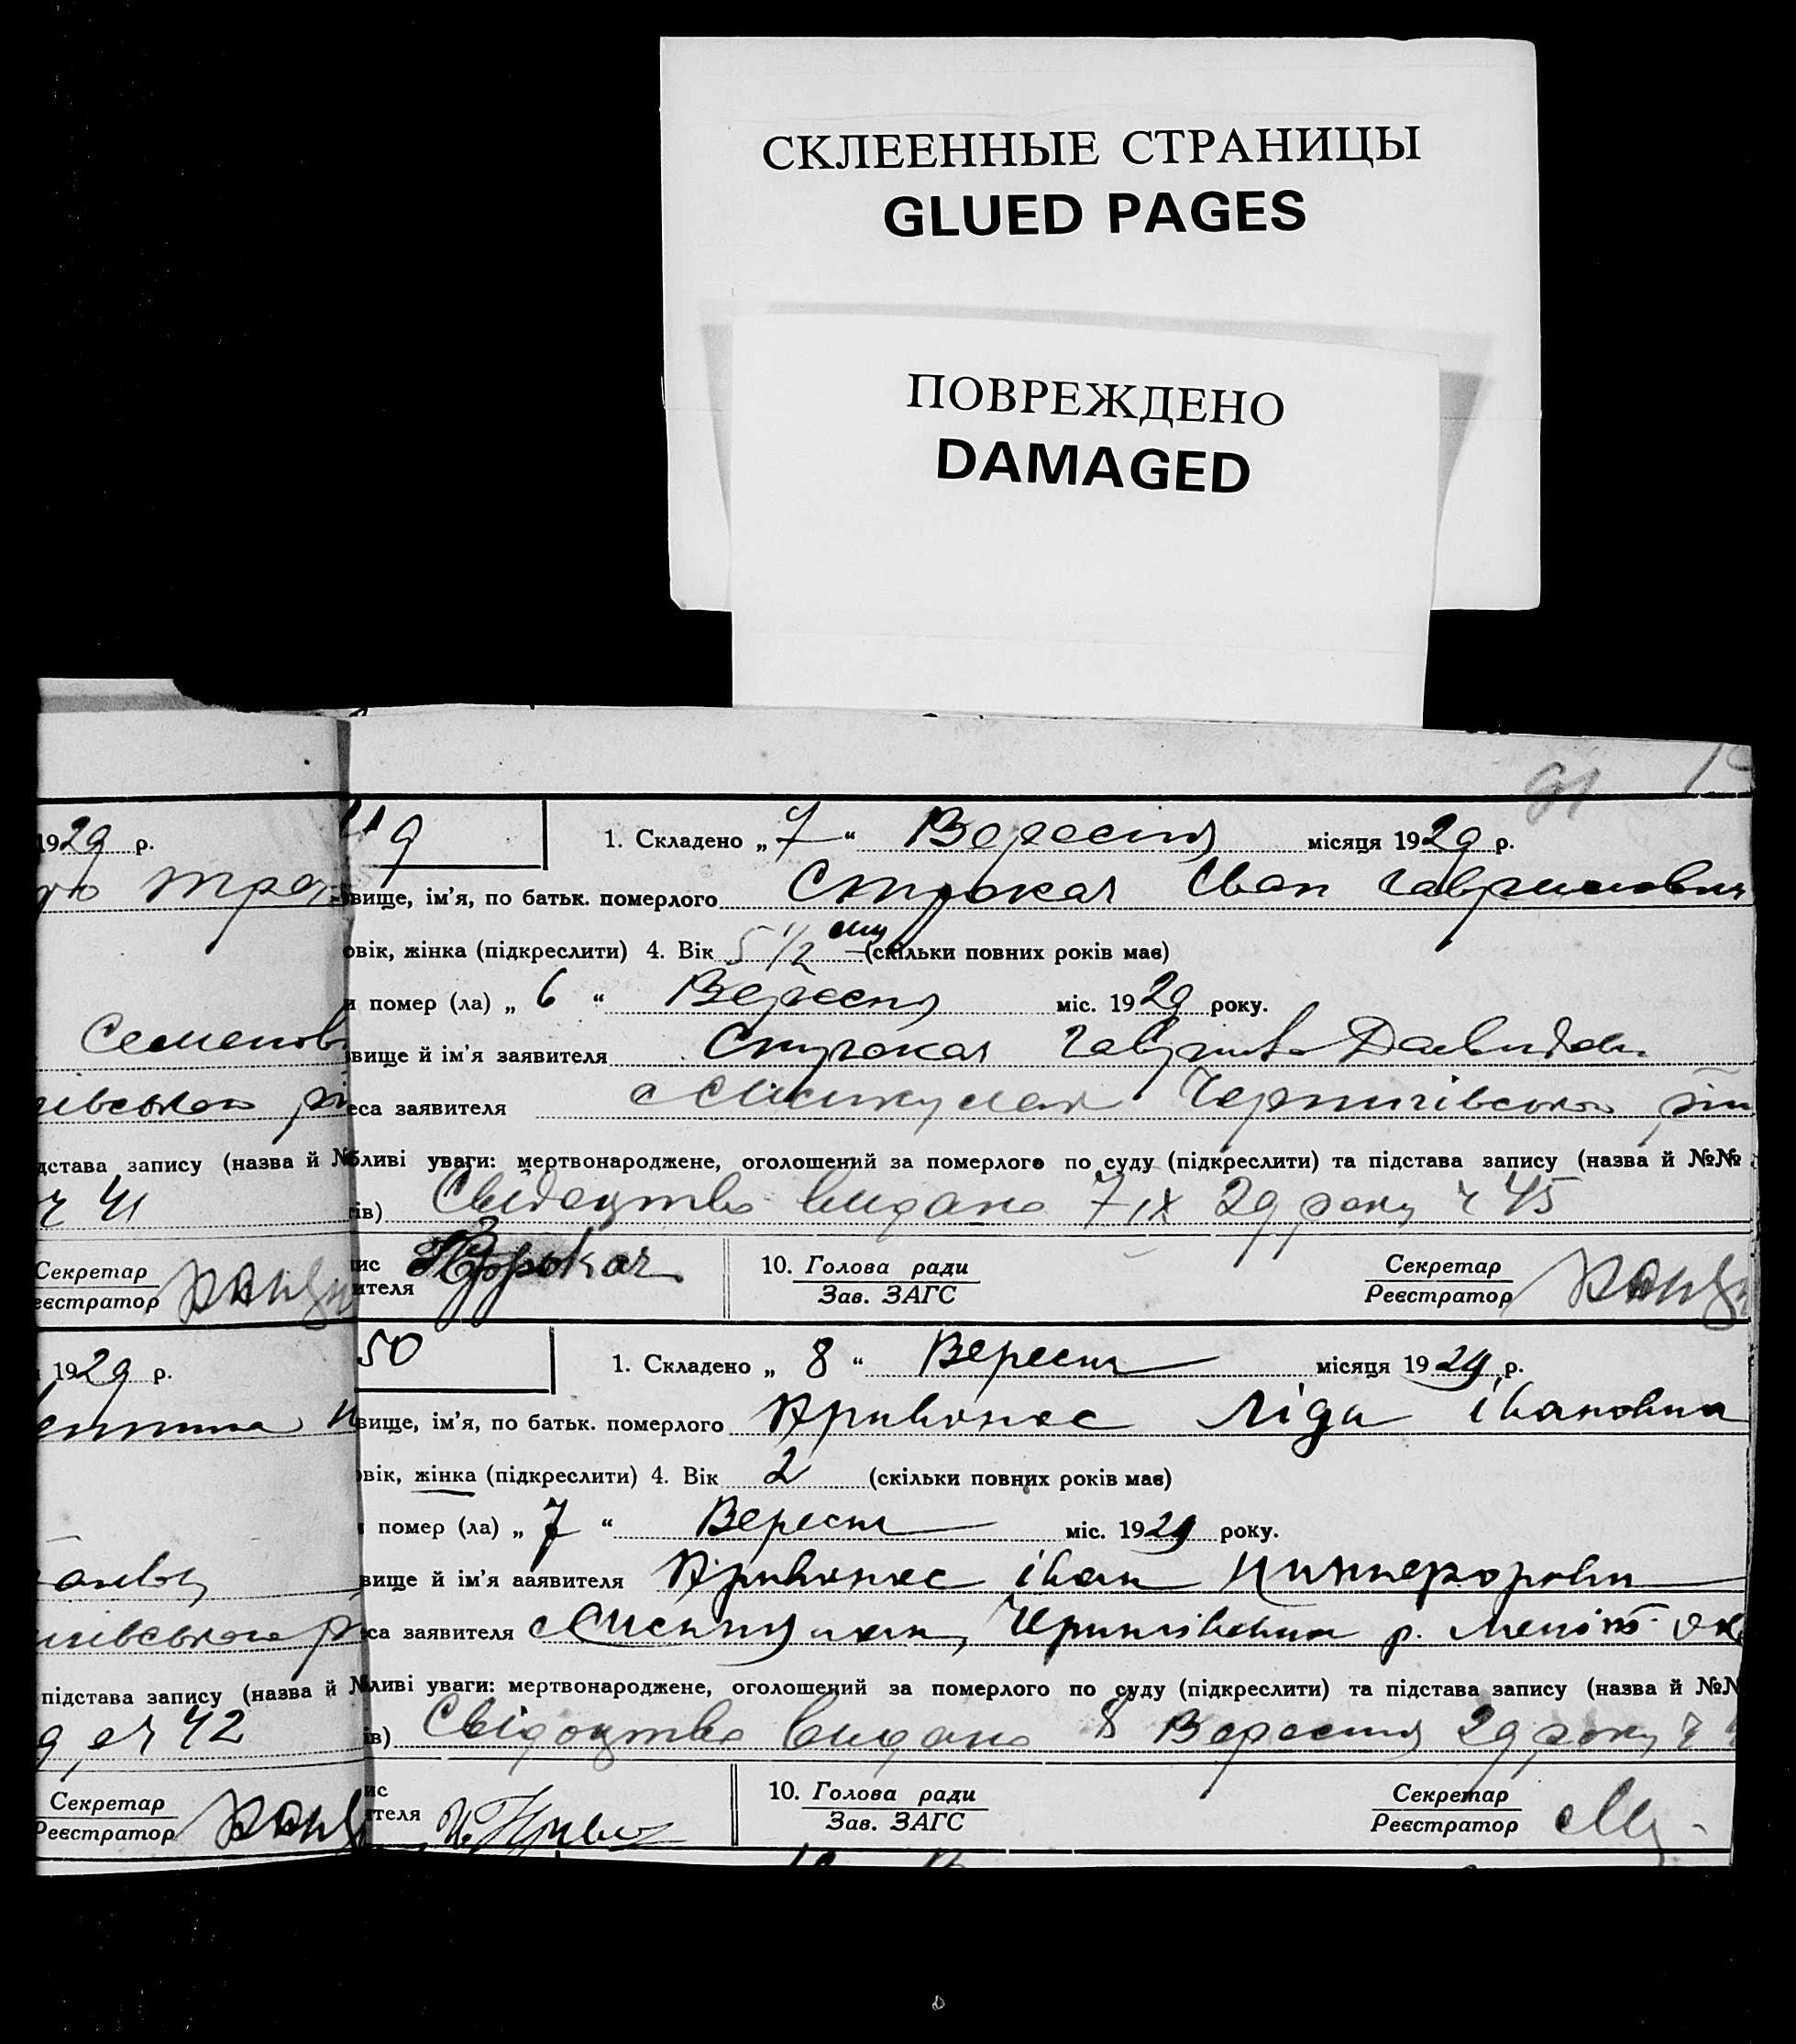 СКЛЕЕННЫЕ СТРАНИЦЫ
GLUED PAGES
ПОВРЕЖДЕНО
DAMAGED
91
1929 р.
Семенов
дстава запису (назва й №
ч 41
Секретар
еєстратор
1929 р.
підстава запису (назва й №
42
Секретар
Реєстратор
49
1. Складено „ 7 “ Вересня місяця 1929 р.
вище, ім’я, по батьк. померлого Строкач Іван Гаврилович
овік, жінка (підкреслити) 4. Вік 5 1/2 (скільки повних років має)
и помер (ла) „ 6 “ Вересня міс. 1929 року.
вище й ім’я заявителя Строкач Гаврило Давидов.
еса заявителя Чернигівського
бливі уваги: мертвонароджене, оголошений за померлого по суду (підкреслити) та підстава запису (назва й №№
ів) Свідоцтво видано 7 ІХ 29 року ч 45
ис
ителя Строкач
10. Голова ради
Зав. ЗАГС
Секретар
Реєстратор
50
1. Складено „ 8 “ Вересня місяця 1929 р.
вище, ім’я, по батьк. померлого Кривонос Ліда Івановна
овік, жінка (підкреслити) 4. Вік 2 (скільки повних років має)
помер (ла) „ 7 “ Вересня міс. 1929 року.
вище й ім’я заявителя Кривонос Іван
са заявителя р.
бливі уваги: мертвонароджене, оголошений за померлого по суду (підкреслити) та підстава запису (назва й №№
ів) Свідоцтво видано 8 Вересня 29 року ч
ис
ителя
10. Голова ради
Зав. ЗАГС
Секретар
Реєстратор